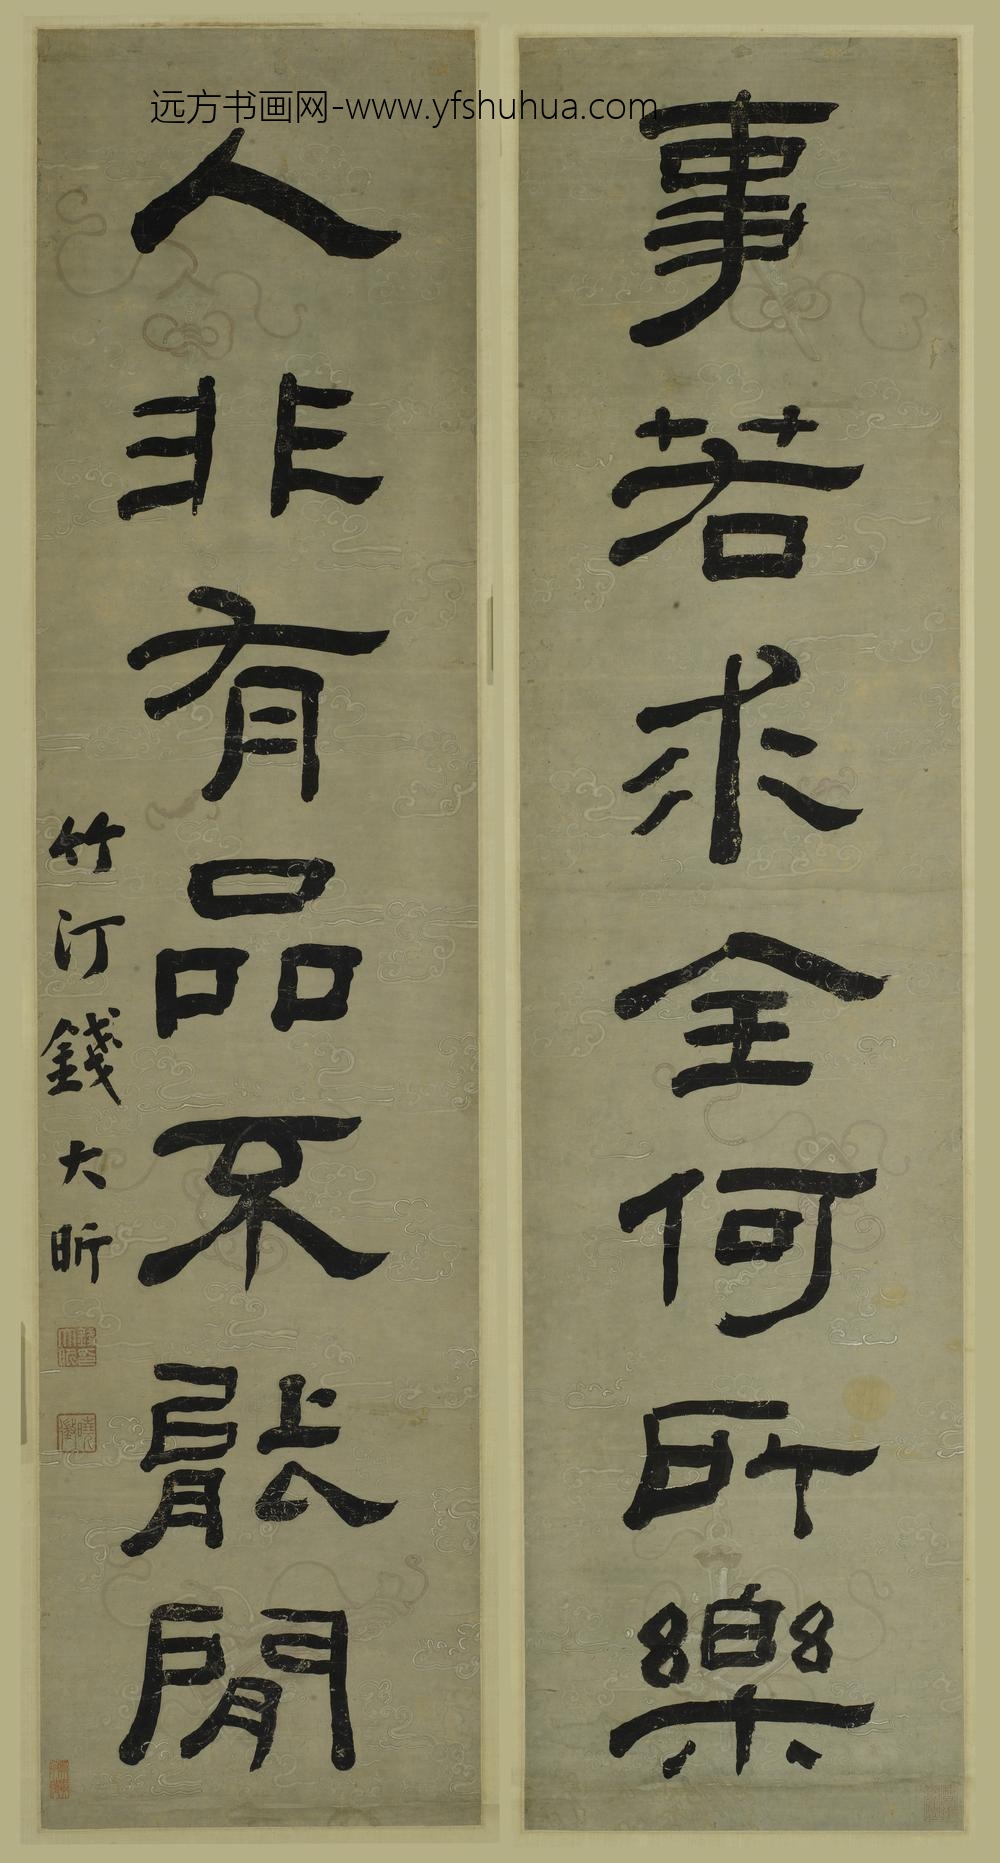 远方书画网-www.yfshuhua.com
事若求全何所樂
人非有品不能閒
竹汀錢大昕